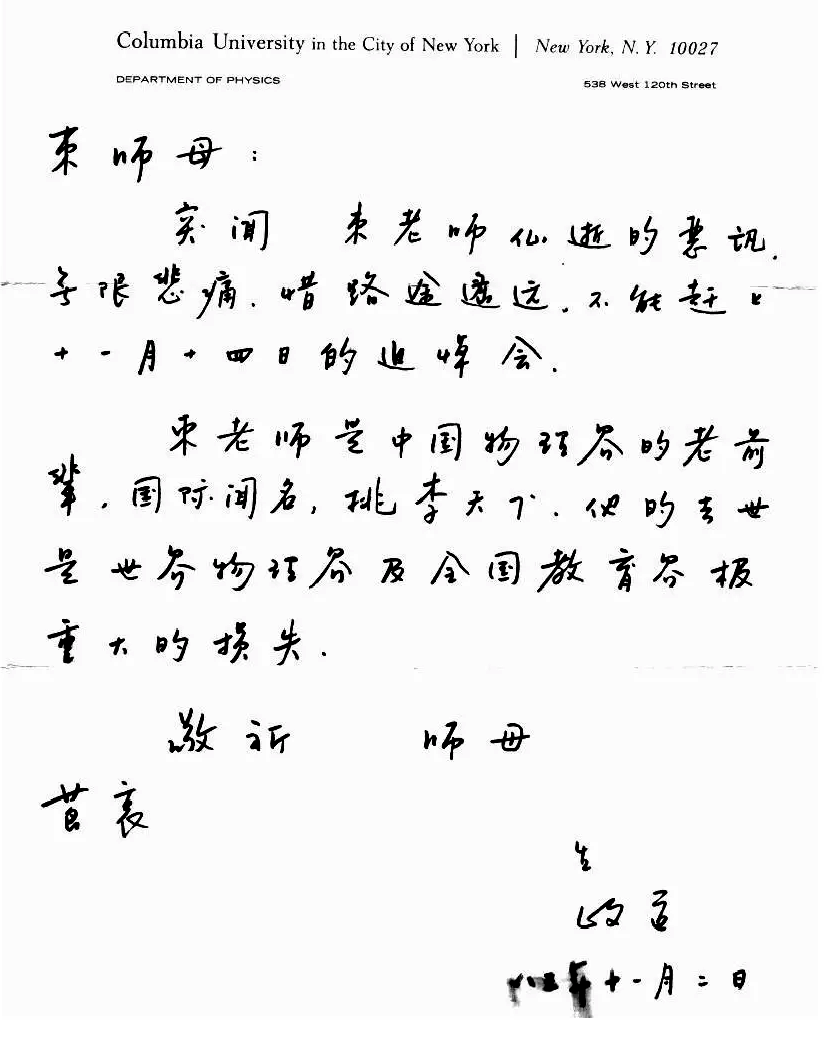 Columbia University in the City of New York | New York, N. Y. 10027
DEPARTMENT OF PHYSICS 538 West 120th Street
束师母：
突闻 束老师仙逝的噩讯.
無限悲痛. 惜路途遥远. 不能赶上
十一月十四日的追悼会.
束老师是中国物理界的老前
辈. 国际闻名, 桃李天下. 他的去世
是世界物理界及全国教育界极
重大的损失.
敬祈 师母
节哀
生
政道
年十一月二日